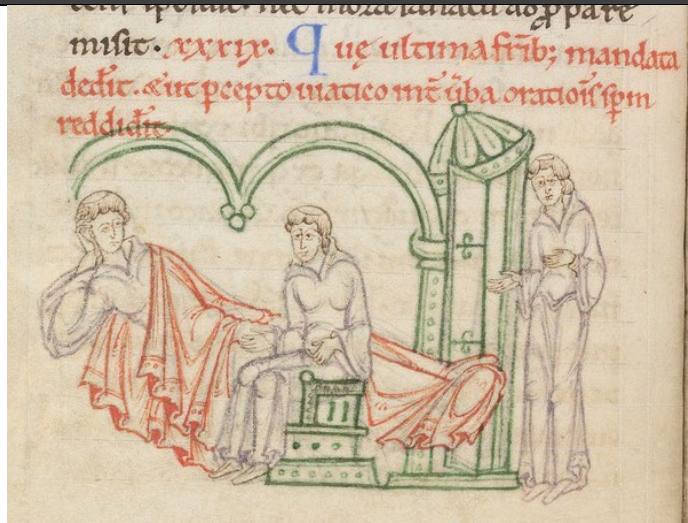 misit. xxxix. Quę ultima frib; mandata
dedit. & ut pcepto uiatico int̄ ūba orationis spm̄
reddidit.